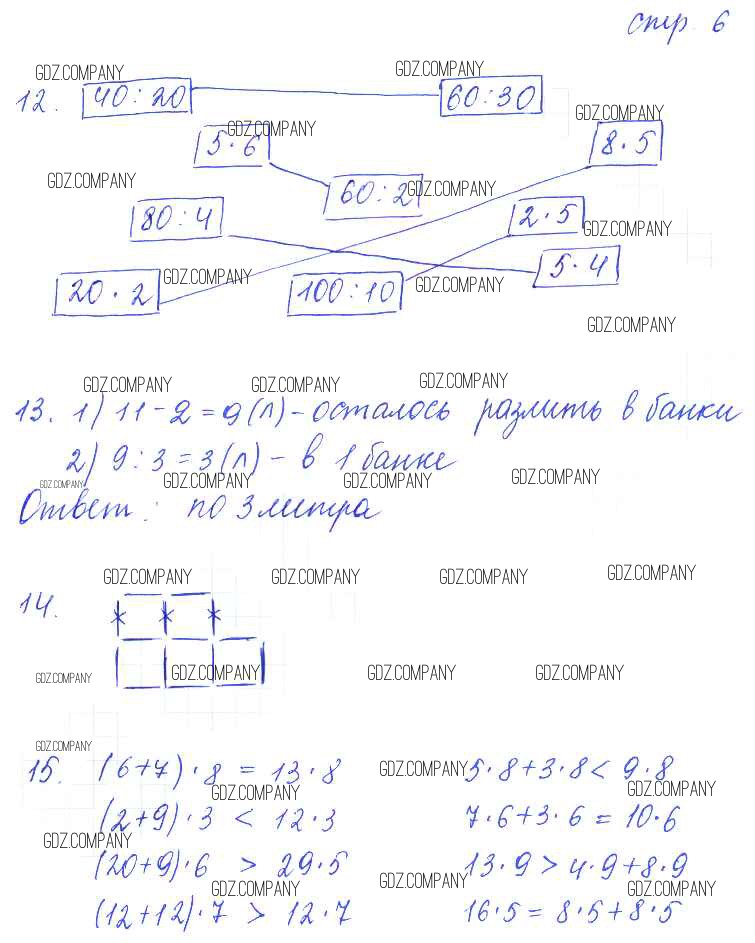 стр. 6
GDZ.COMPANY GDZ.COMPANY
12. 40:20 60:30
GDZ.COMPANY
GDZ.COMPANY
5·6 8·5
GDZ.COMPANY GDZ.COMPANY
60:2
80:4 2·5
GDZ.COMPANY
5·4
GDZ.COMPANY GDZ.COMPANY
20·2 100:10
GDZ.COMPANY
GDZ.COMPANY GDZ.COMPANY GDZ.COMPANY
13. 1) 11-2=9(л)-осталось разлить в банки
2) 9:3=3(л)-в 1 банке
GDZ.COMPANY GDZ.COMPANY GDZ.COMPANY GDZ.COMPANY
Ответ: по 3 литра
GDZ.COMPANY GDZ.COMPANY GDZ.COMPANY GDZ.COMPANY
14.
GDZ.COMPANY GDZ.COMPANY GDZ.COMPANY GDZ.COMPANY
GDZ.COMPANY
15. (6+7)·8 = 13·8 GDZ.COMPANY 5·8+3·8 < 9·8
GDZ.COMPANY GDZ.COMPANY
(2+9)·3 < 12·3 7·6+3·6 = 10·6
GDZ.COMPANY
(20+9)·6 > 29·5 13·9 > 4·9+8·9
GDZ.COMPANY GDZ.COMPANY GDZ.COMPANY
(12+12)·7 > 12·7 16·5 = 8·5+8·5